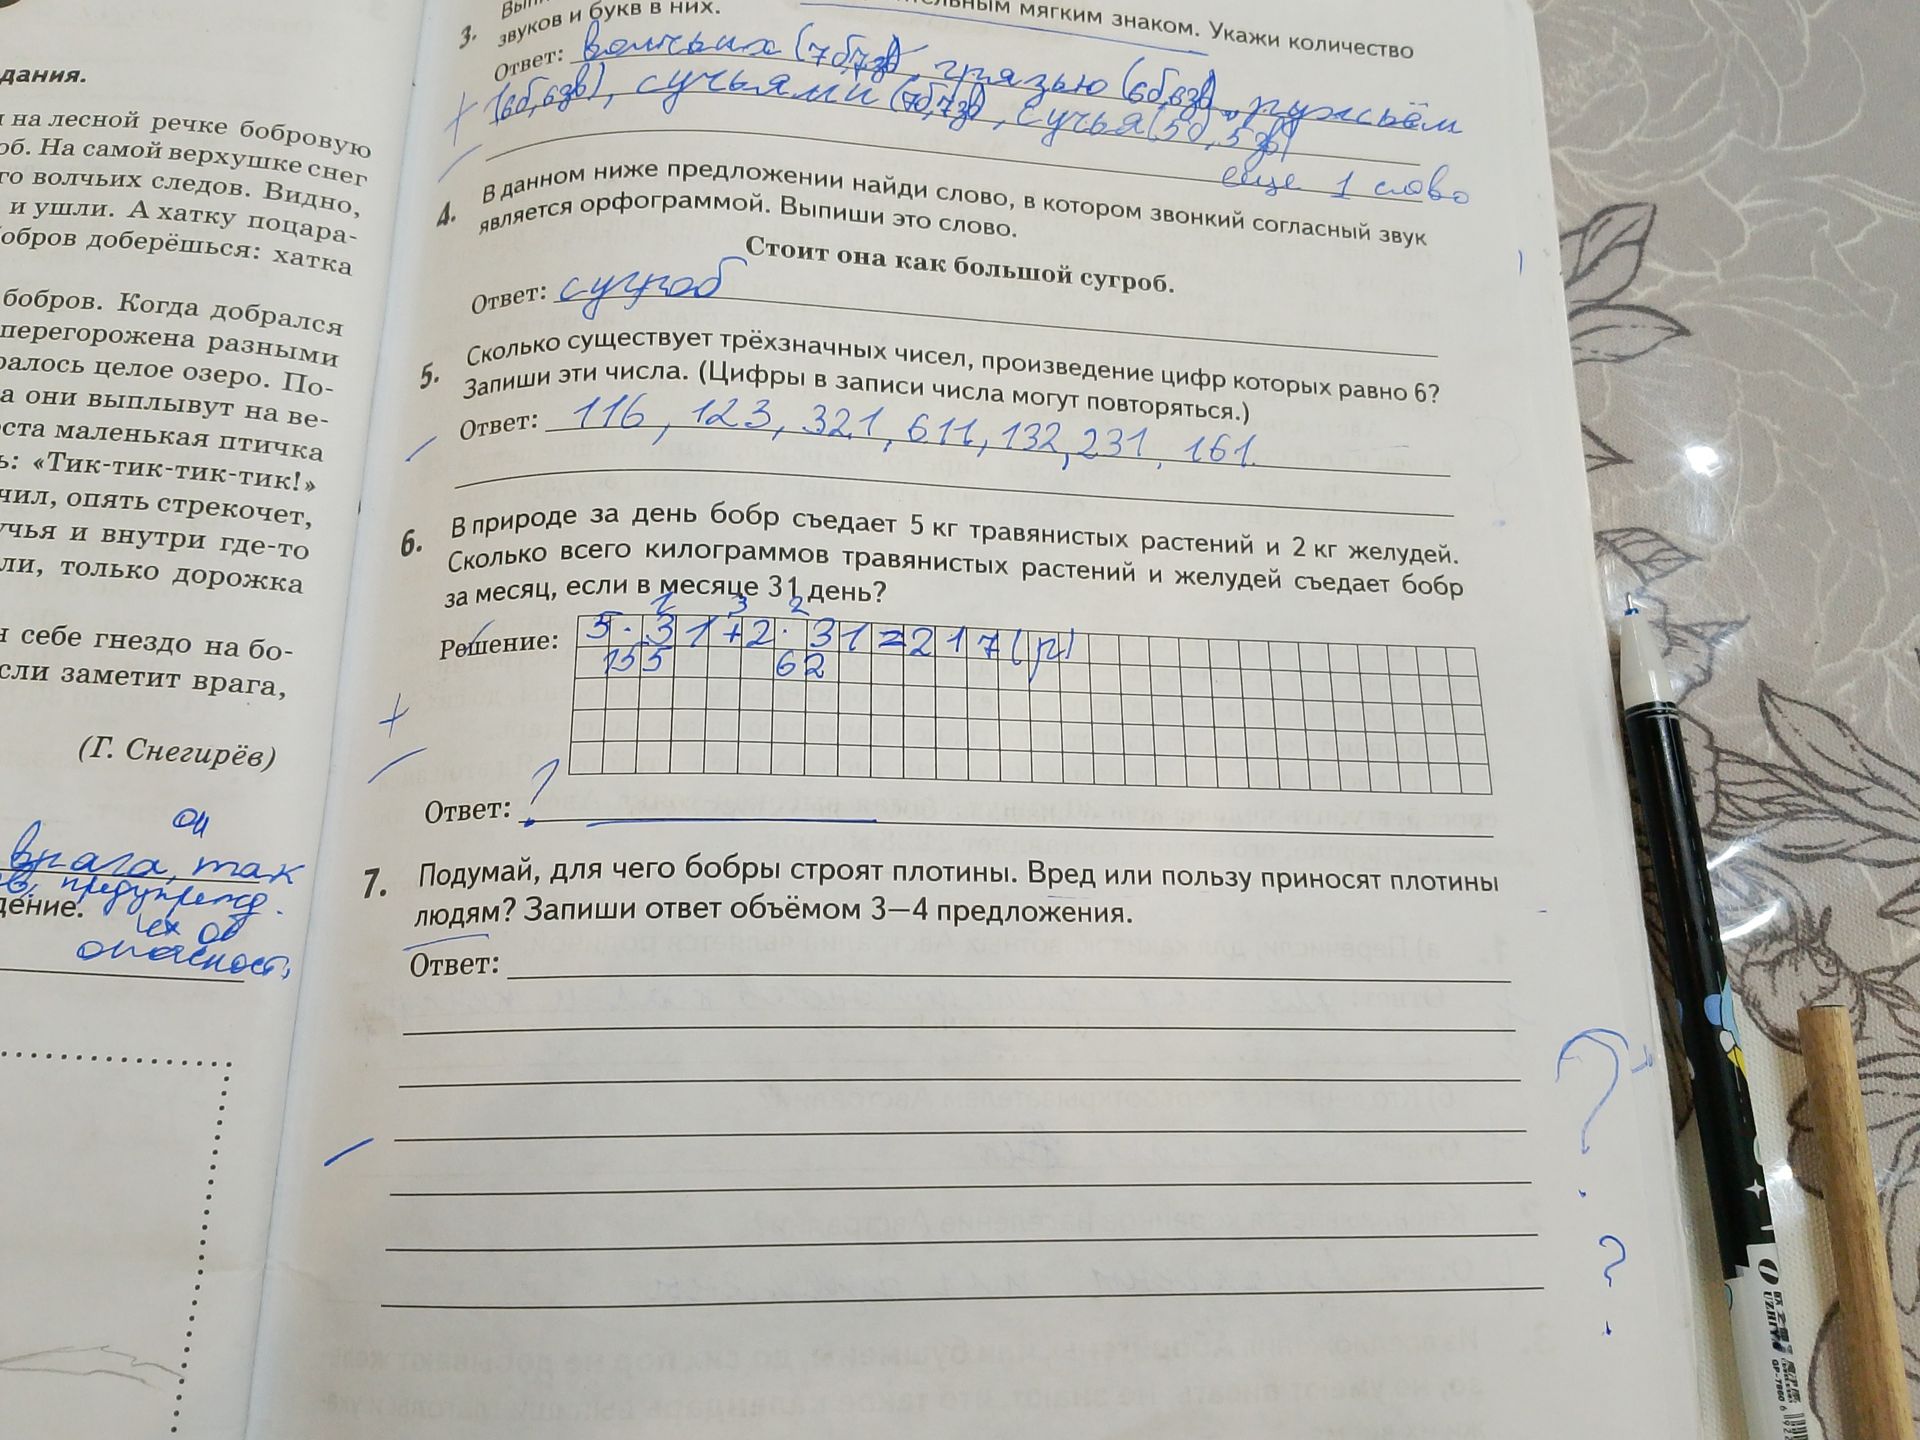 дания.
на лесной речке бобровую
об. На самой верхушке снег
го волчьих следов. Видно,
и ушли. А хатку поцара-
обров доберёшься: хатка
бобров. Когда добрался
перегорожена разными
ралось целое озеро. По-
а они выплывут на ве-
оста маленькая птичка
ь: «Тик-тик-тик-тик!»
чил, опять стрекочет,
учья и внутри где-то
ли, только дорожка
и себе гнездо на бо-
сли заметит врага,
(Г. Снегирёв)
он
врага, так
предупрежд.
дение.
их об
опасност
3.
мягким знаком. Укажи количество
звуков и букв в них.
Ответ: волчьих (7б,7зв), грязью (6б,6зв), ружьём
(6б,6зв), сучьями (7б,7зв), сучья (5б,5зв)
еще 1 слово
4. В данном ниже предложении найди слово, в котором звонкий согласный звук
является орфограммой. Выпиши это слово.
Стоит она как большой сугроб.
Ответ: сугроб
5. Сколько существует трёхзначных чисел, произведение цифр которых равно 6?
Запиши эти числа. (Цифры в записи числа могут повторяться.)
Ответ: 116, 123, 321, 611, 132, 231, 161.
6. В природе за день бобр съедает 5 кг травянистых растений и 2 кг желудей.
Сколько всего килограммов травянистых растений и желудей съедает бобр
за месяц, если в месяце 31 день?
1 3 2
Решение: 5·31+2·31=217(
155 62
Ответ: ?
7. Подумай, для чего бобры строят плотины. Вред или пользу приносят плотины
людям? Запиши ответ объёмом 3—4 предложения.
Ответ:
?
?